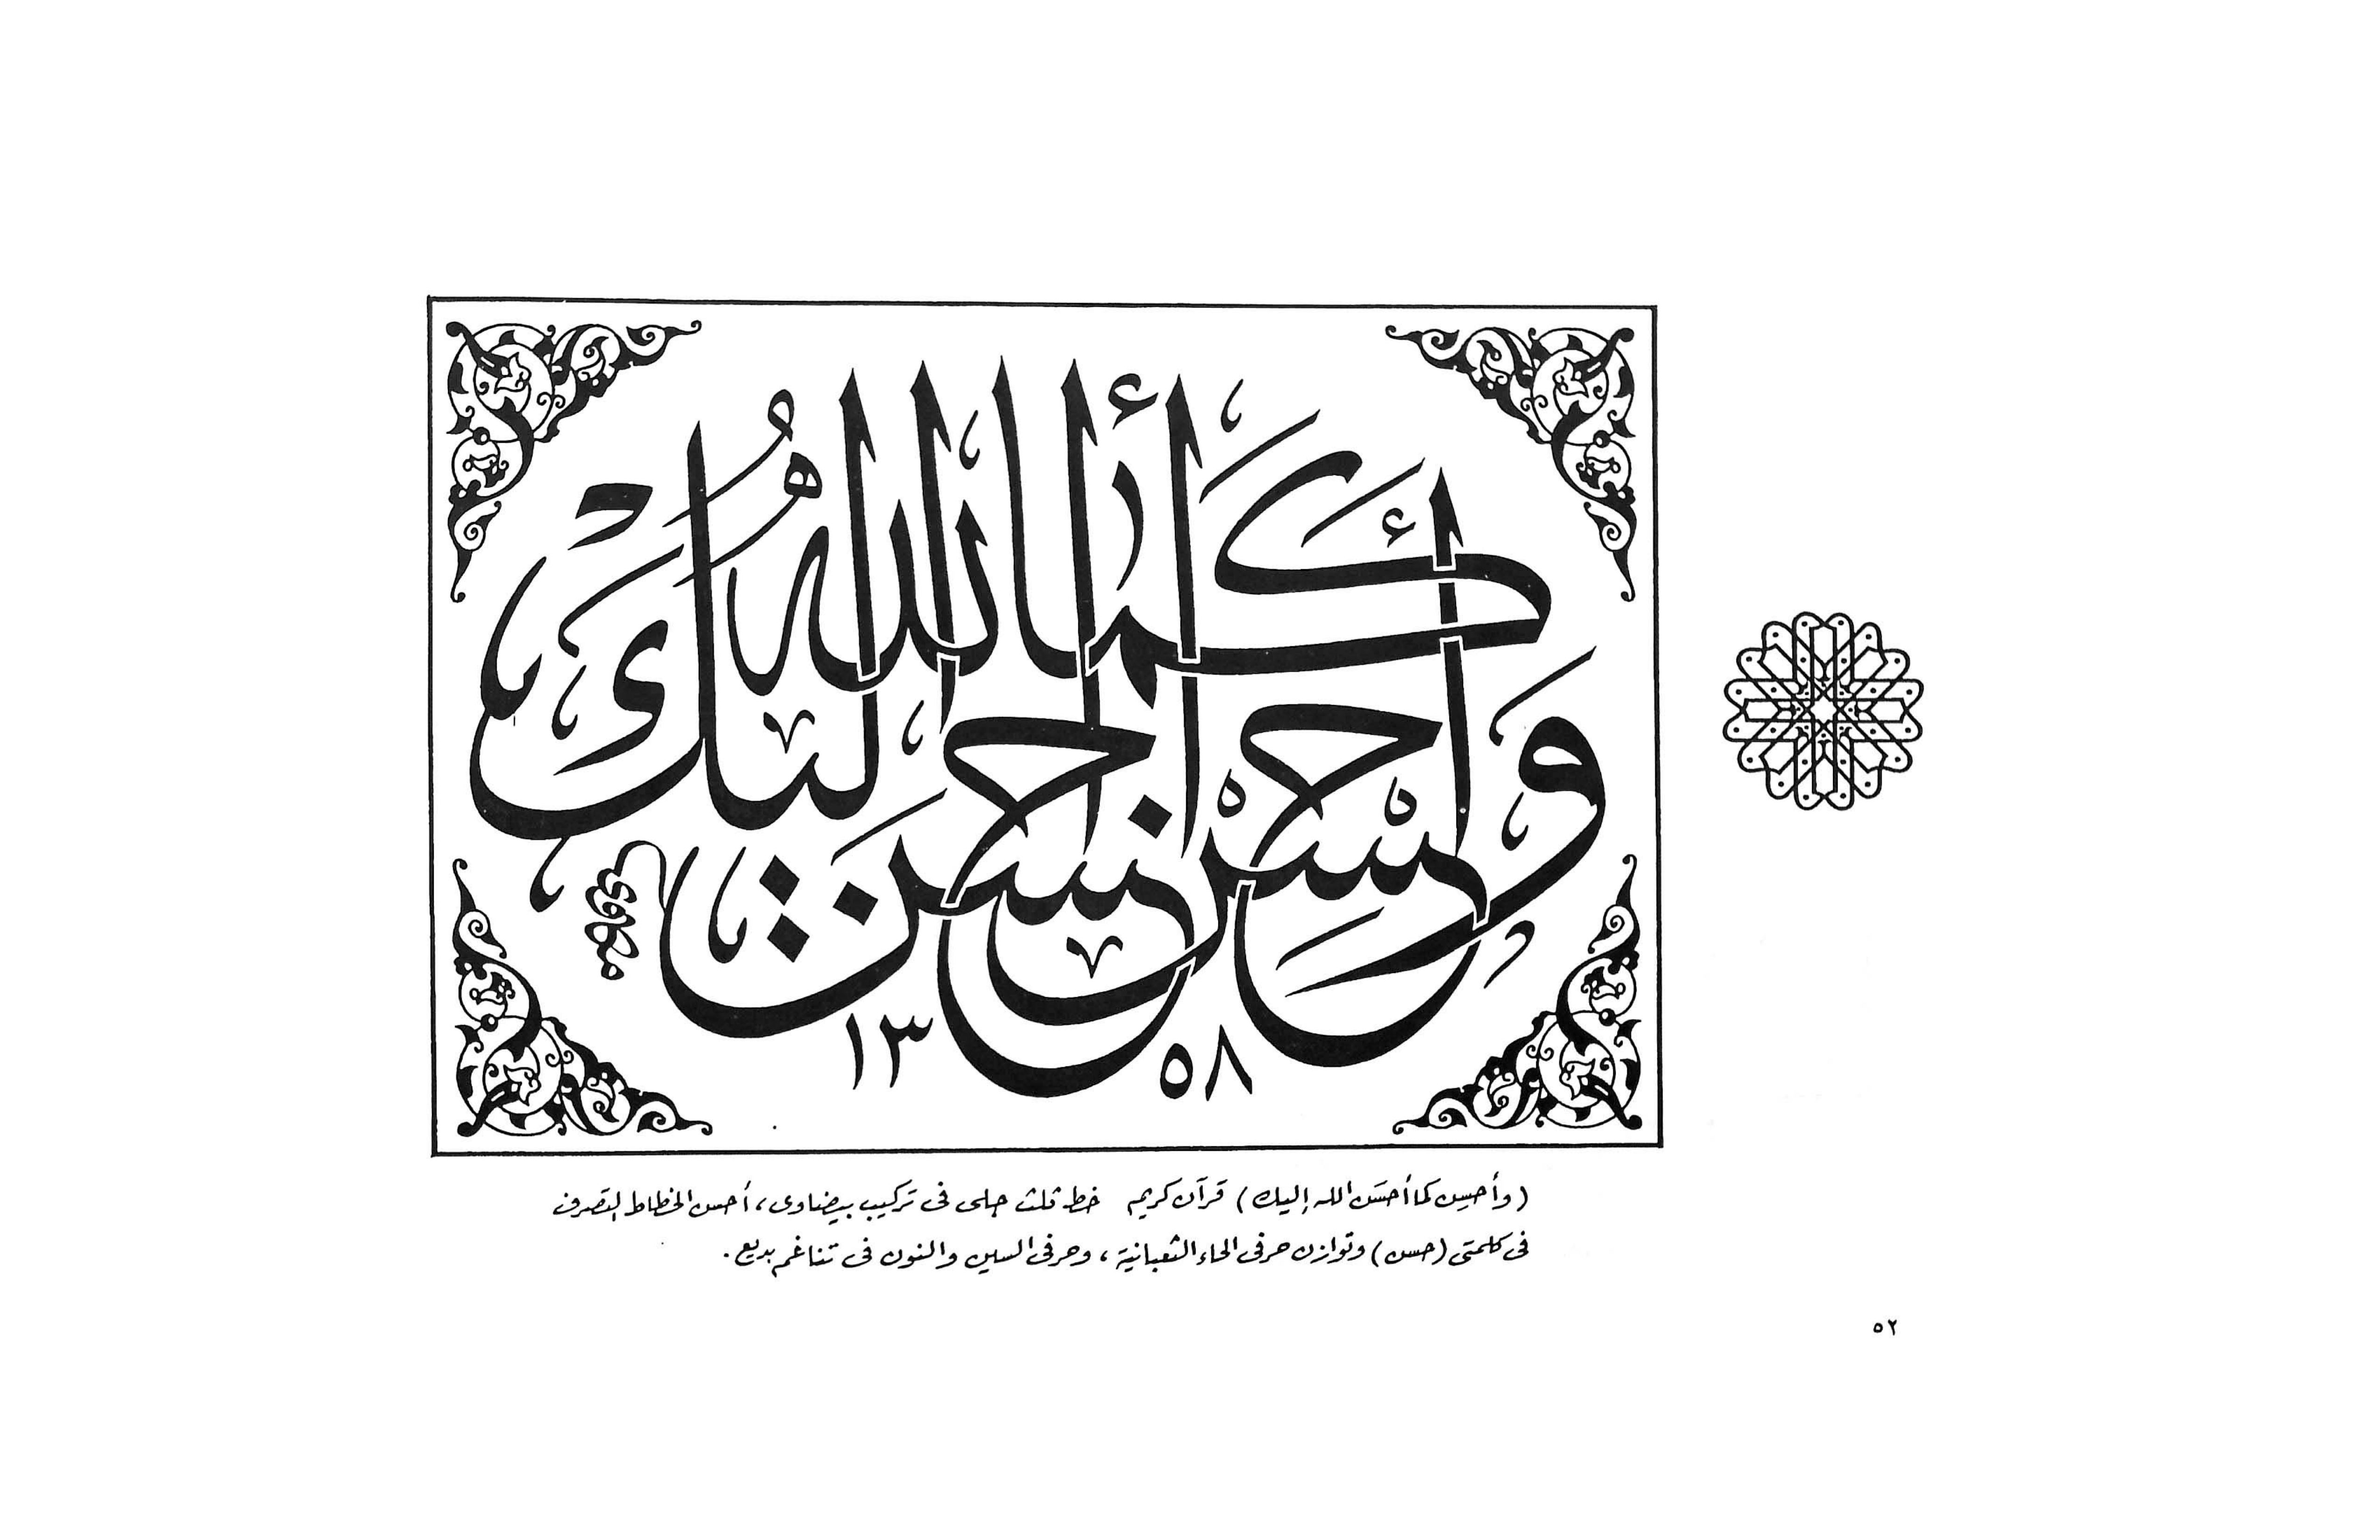 وَأَحْسِنْ كَمَا أَحْسَنَ اللَّهُ إِلَيْكَ
١٣٥٨
(وأحسِن كما أحسَن الله إليك) قرآن كريم خط ثلث جلى فى تركيب بيضاوى، أحسن الخطاط التصرف
فى كلمتى (حسن) وتوازن حرفى الحاء الثعبانية، وحرفى السين والنون فى تناغم بديع.
٥٢